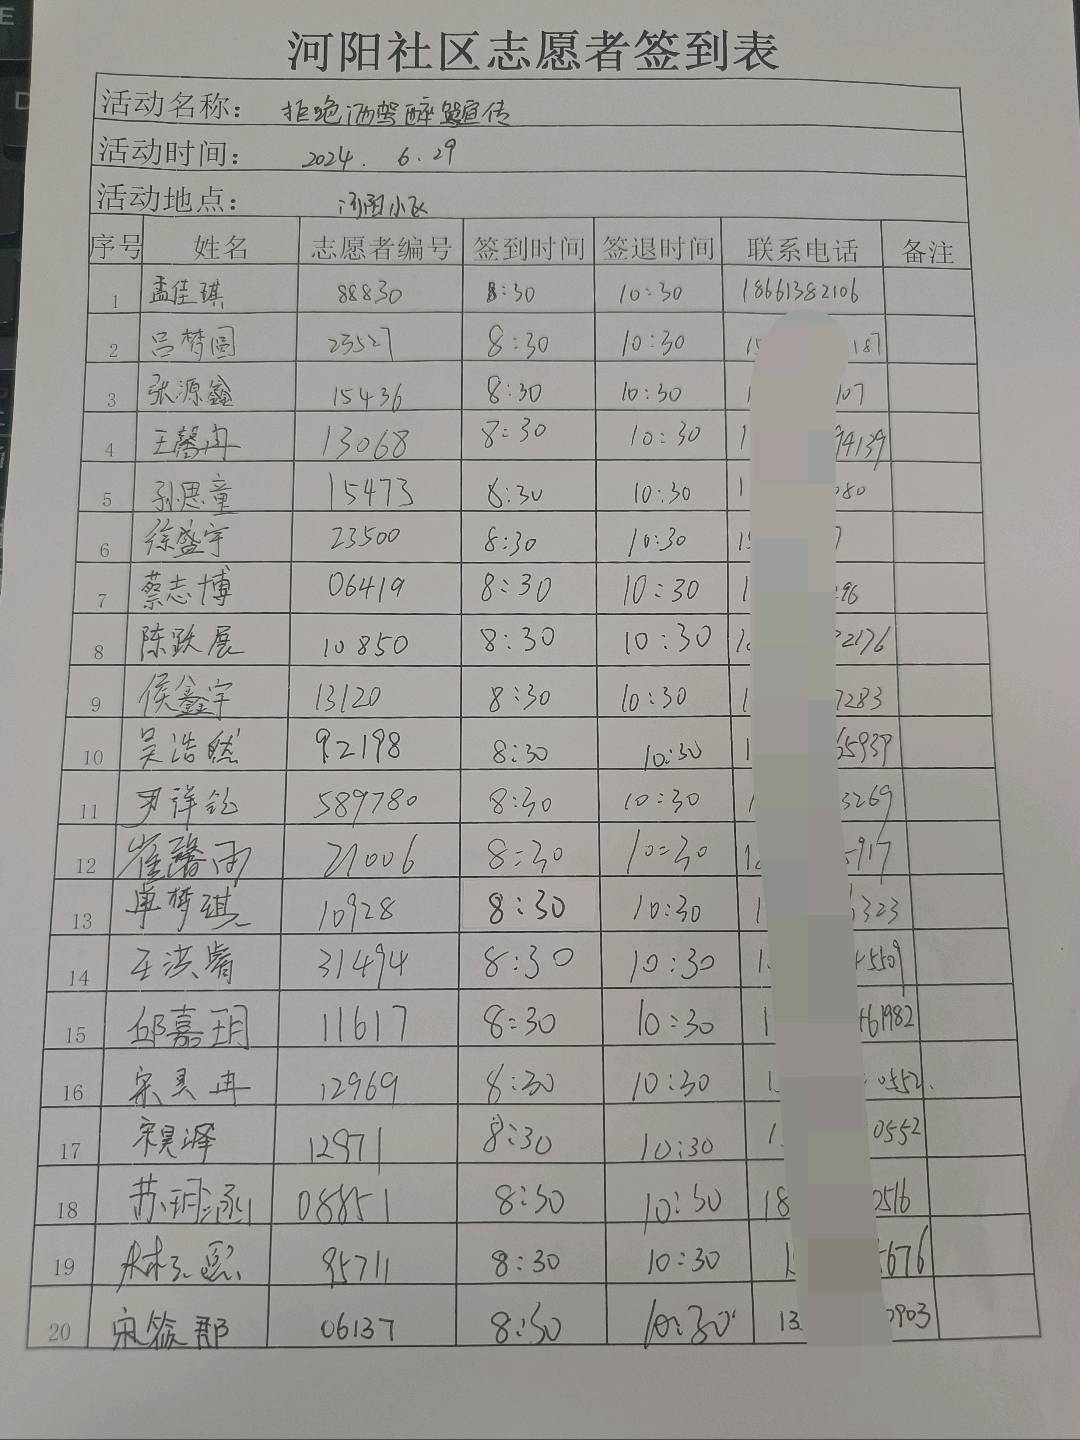 河阳社区志愿者签到表
活动名称： 拒绝酒驾醉驾宣传
活动时间： 2024. 6.29
活动地点： 河阳小区
序号 姓名 志愿者编号 签到时间 签退时间 联系电话 备注
1 孟佳琪 88830 8:30 10:30 18661382106
2 吕梦圆 23527 8:30 10:30 15 187
3 张源鑫 15436 8:30 10:30 1 107
4 王馨冉 13068 8:30 10:30 1 94139
5 孙思童 15473 8:30 10:30 1 080
6 徐盛宇 23500 8:30 10:30 15 7
7 蔡志博 06419 8:30 10:30 1 296
8 陈跃展 10850 8:30 10:30 1 2176
9 侯鑫宇 13120 8:30 10:30 1 7283
10 吴浩然 92198 8:30 10:30 1 65939
11 尹祥钰 589780 8:30 10:30 1 3269
12 崔馨雨 21006 8:30 10:30 1 917
13 单梦琪 10928 8:30 10:30 1 323
14 王洪睿 31494 8:30 10:30 1 5509
15 邱嘉玥 11617 8:30 10:30 1 61982
16 宋昊冉 12969 8:30 10:30 1 0552
17 宋昊泽 12971 8:30 10:30 1 0552
18 苏玥涵 08851 8:30 10:30 18 0516
19 95711 8:30 10:30 1 676
20 06137 8:30 10:30 13 0903